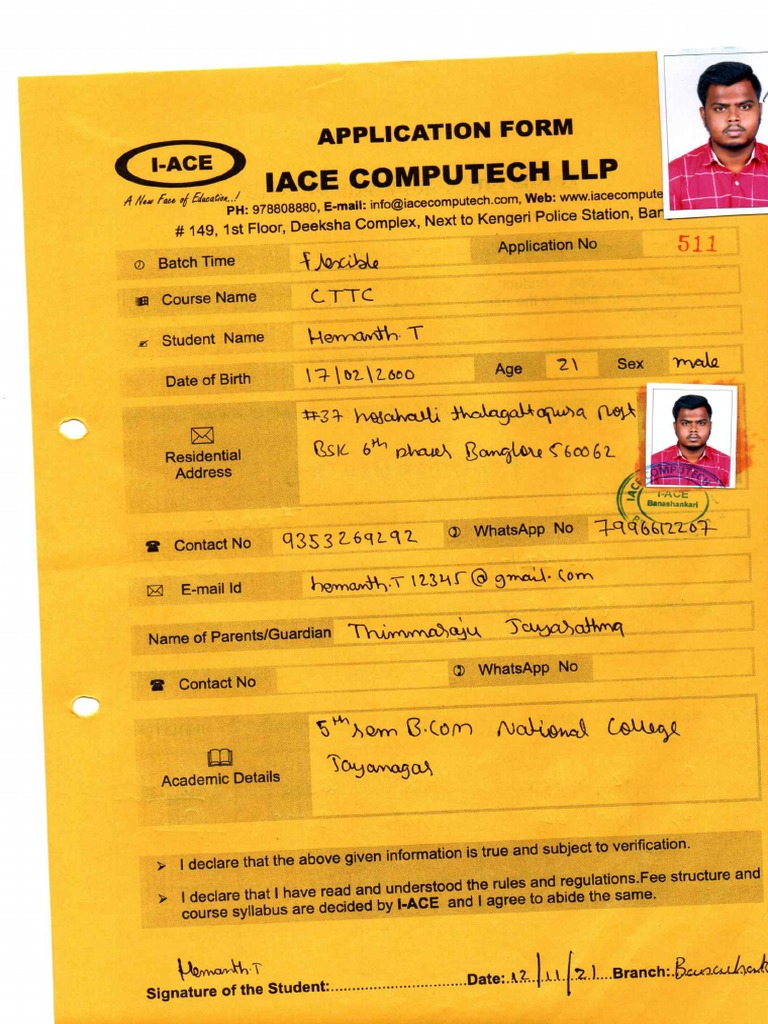 APPLICATION FORM
I-ACE
IACE COMPUTECH LLP
A New Face of Education..!
PH: 978808880, E-mail: info@iacecomputech.com, Web: www.iacecompute
# 149, 1st Floor, Deeksha Complex, Next to Kengeri Police Station, Ban
Batch Time flexible Application No 511
Course Name CTTC
Student Name Hemanth.T
Date of Birth 17/02/2000 Age 21 Sex male
#37 hosahalli thalagattapura post
Residential Address BSK 6th phases Banglore 560062
IACE COMPUTECH
I-ACE
Banashankari
Contact No 9353269292 WhatsApp No 7996612207
E-mail Id hemanth.T12345@gmail.com
Name of Parents/Guardian Thimmaraju Jayarathna
Contact No WhatsApp No
5th sem B.COM National College
Academic Details Jayanagar
➢ I declare that the above given information is true and subject to verification.
➢ I declare that I have read and understood the rules and regulations.Fee structure and
course syllabus are decided by I-ACE and I agree to abide the same.
Hemanth.T
Signature of the Student:........................ Date: 12/11/21 Branch: